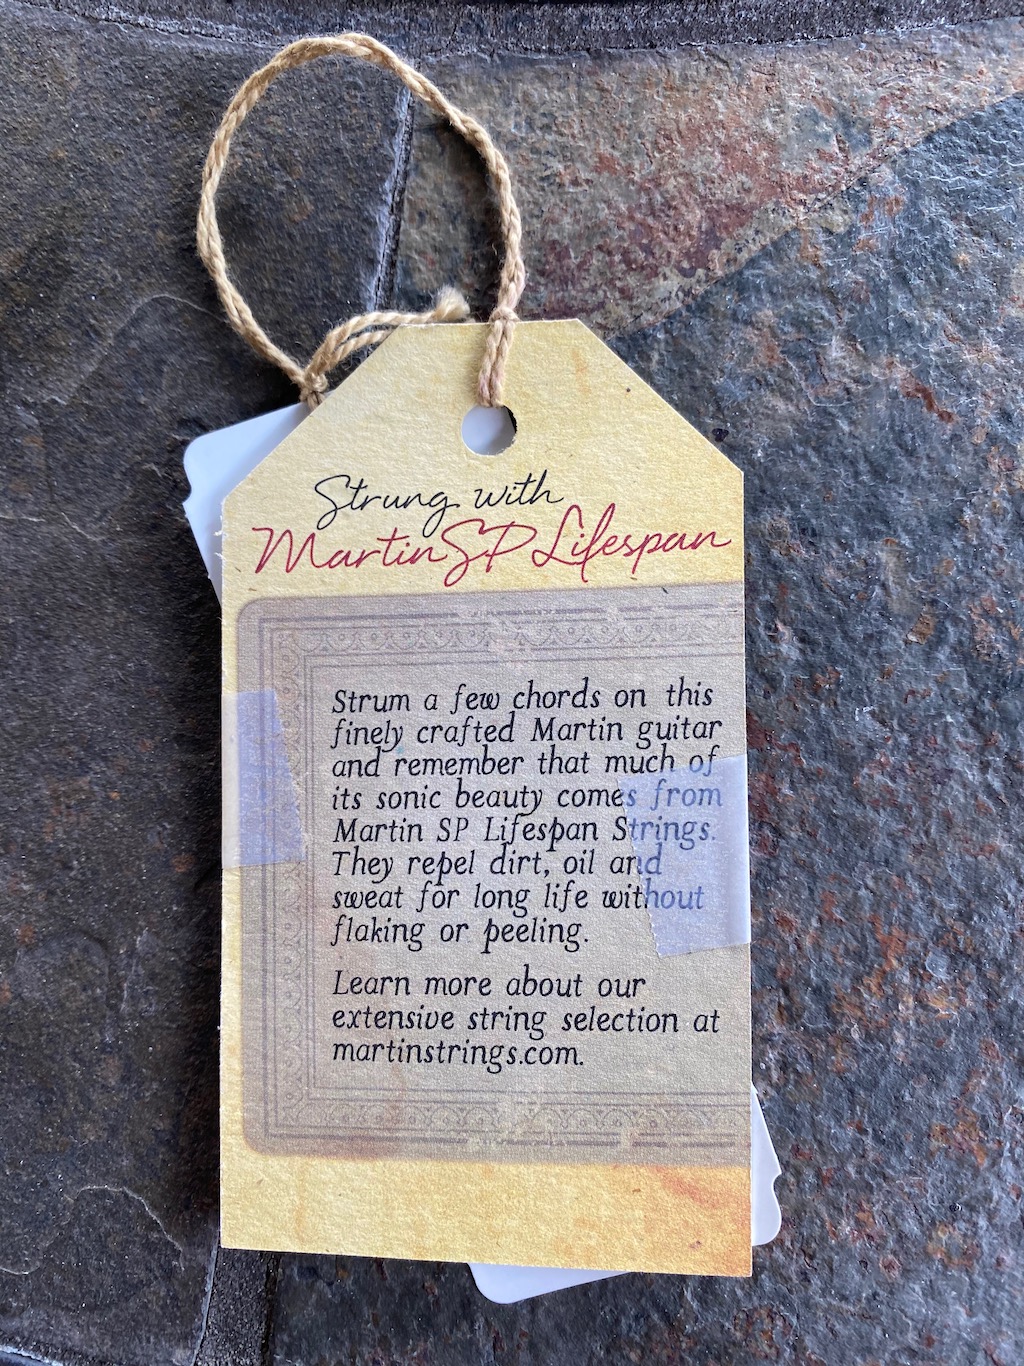 Strung with
Martin SP Lifespan
Strum a few chords on this
finely crafted Martin guitar
and remember that much of
its sonic beauty comes from
Martin SP Lifespan Strings.
They repel dirt, oil and
sweat for long life without
flaking or peeling.
Learn more about our
extensive string selection at
martinstrings.com.